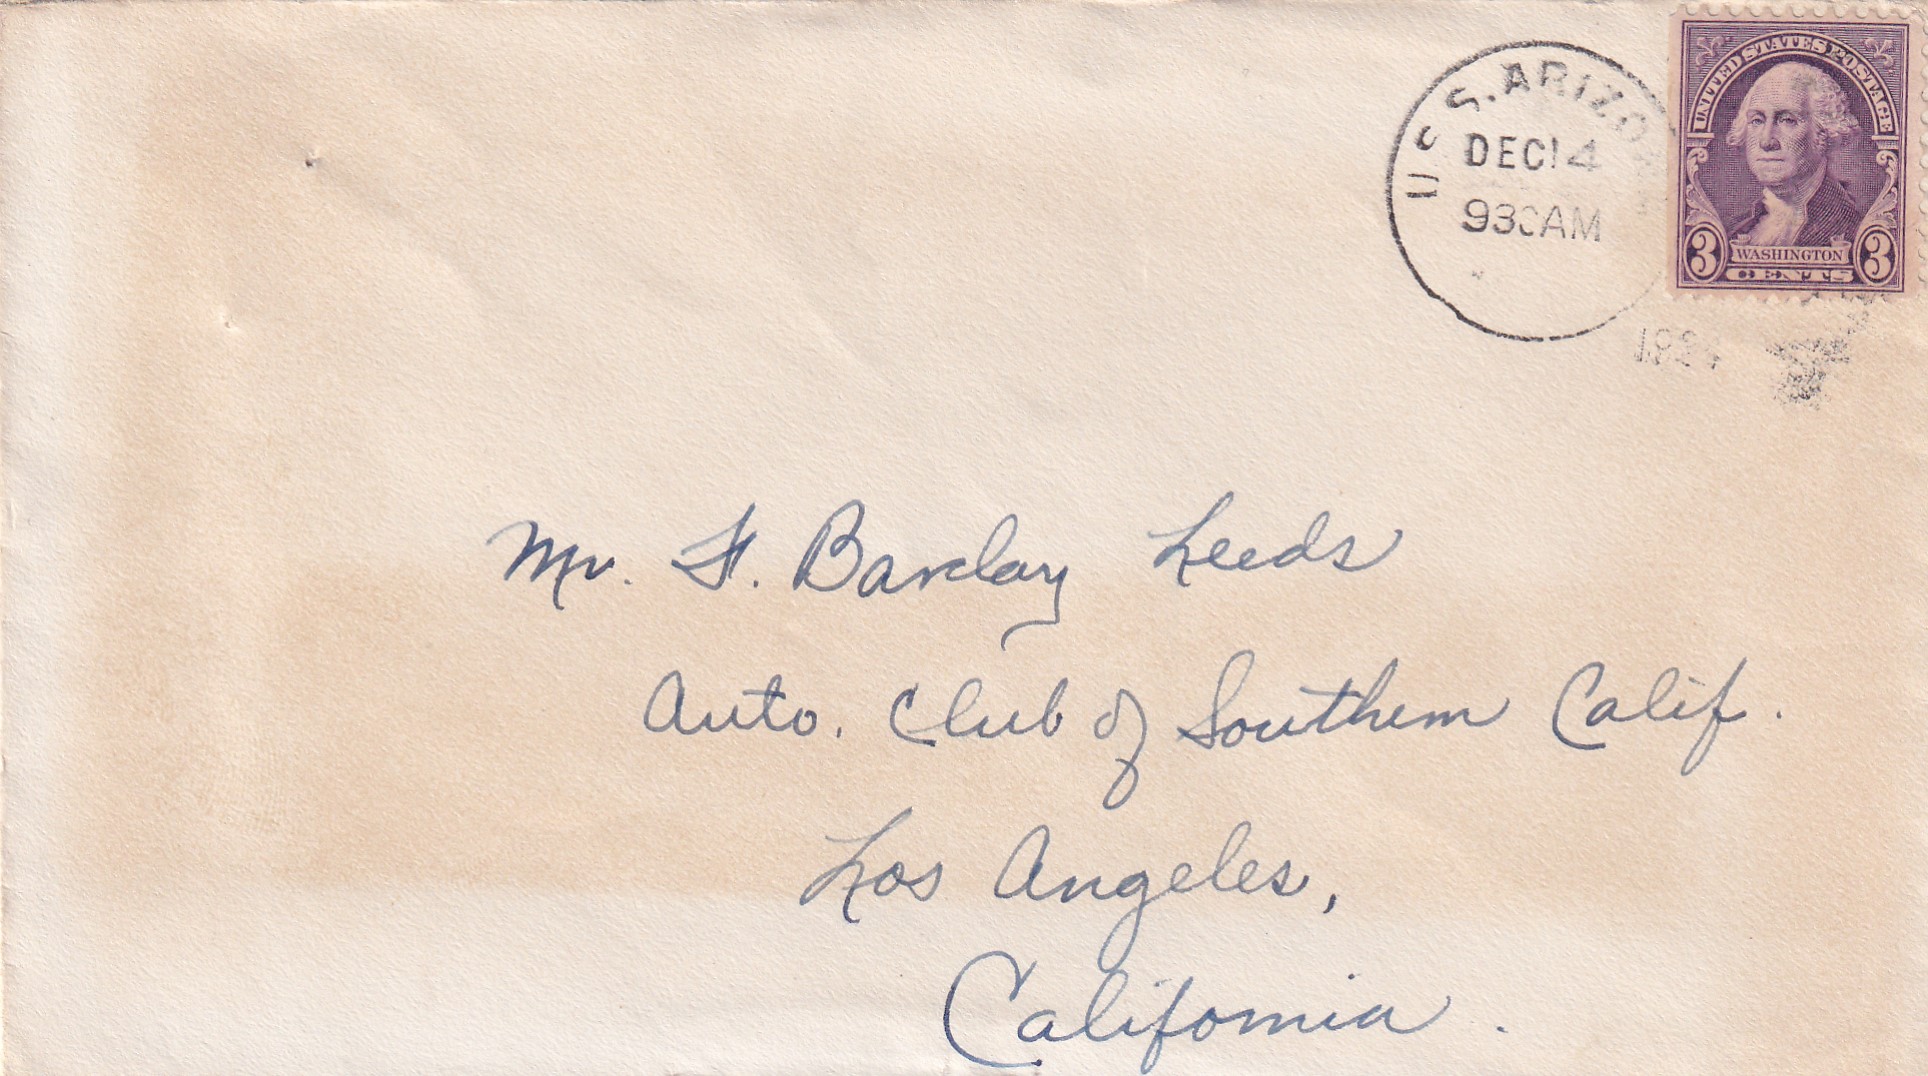 U.S.S. ARIZO
DEC 14
930 AM
UNITED STATES POSTAGE
3 WASHINGTON 3
CENTS
Mr. F. Barclay Leeds
Auto. Club of Southern Calif.
Los Angeles,
California.